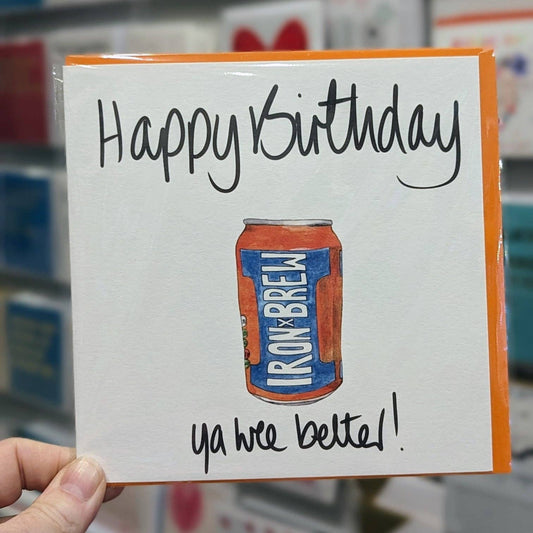 Happy Birthday
IRON x BREW
ya wee belter!